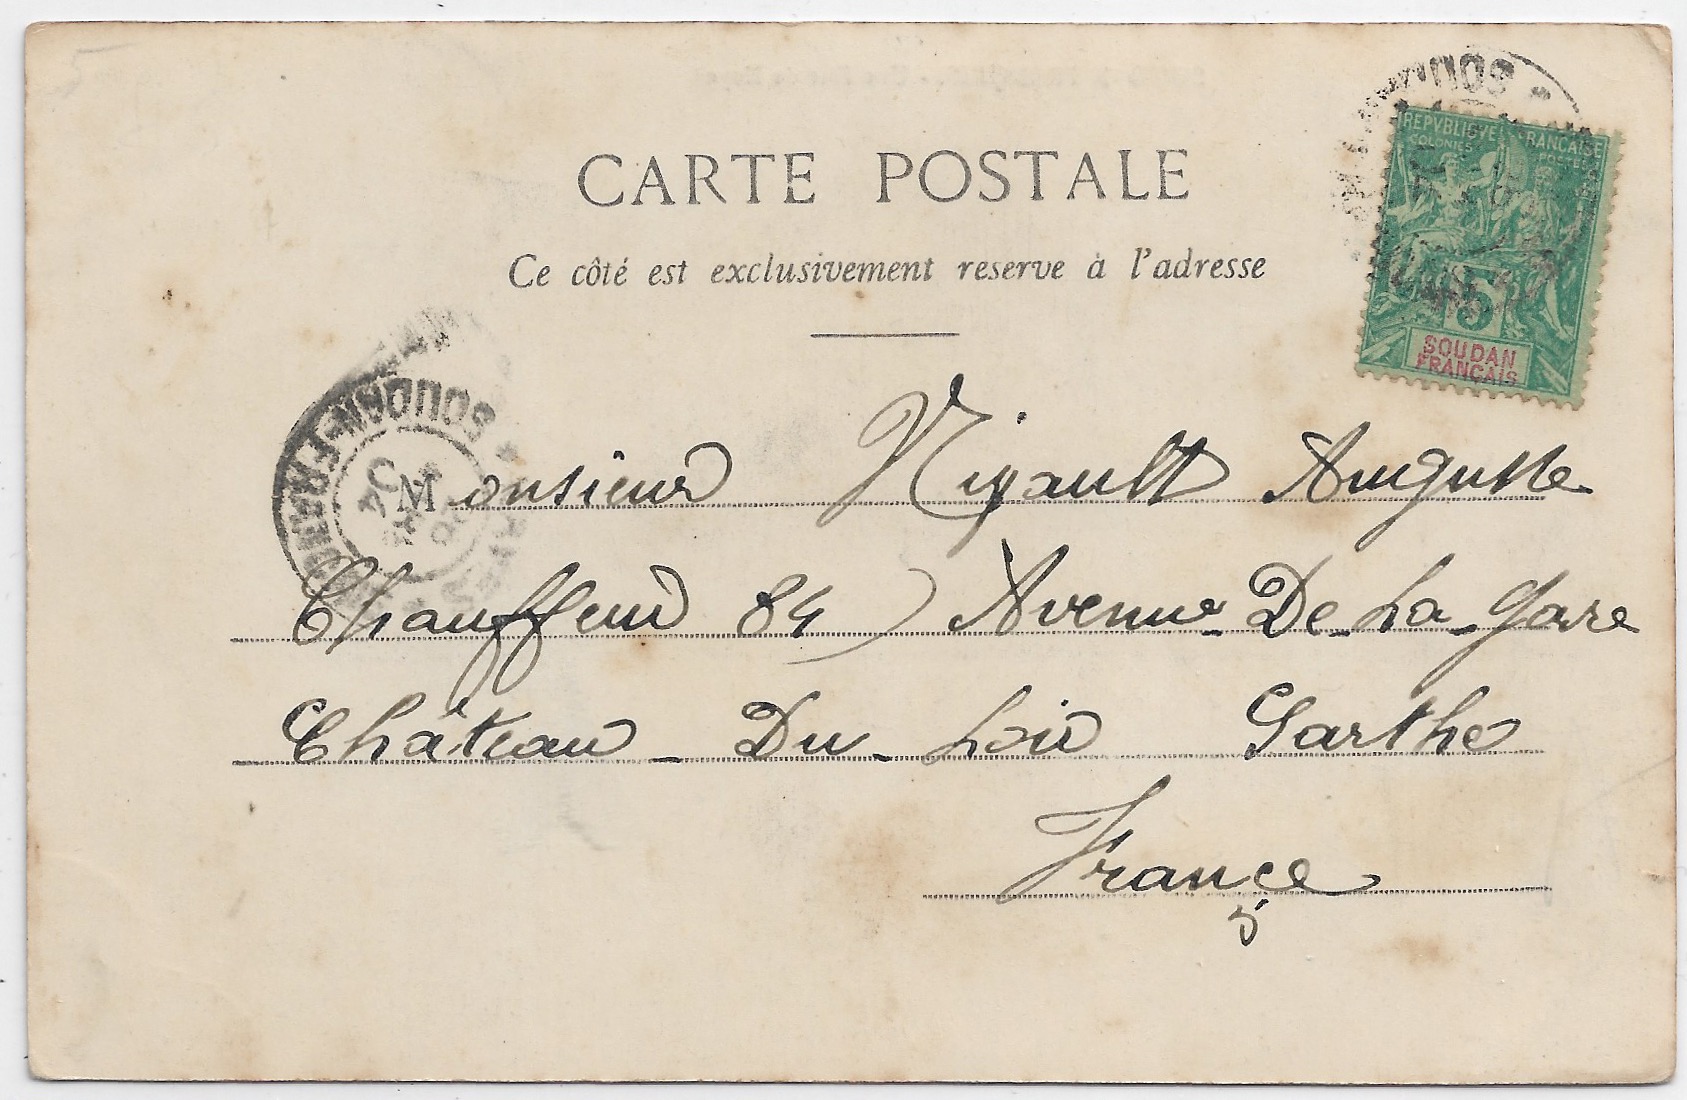 CARTE POSTALE
Ce côté est exclusivement reserve à l'adresse
REPVBLIQVE FRANÇAISE
COLONIES POSTES
5
SOUDAN
FRANÇAIS
SOUDAN-FR
Monsieur Rigault Auguste
Chauffeur 84 Avenue De La gare
Château Du Loir Sarthe
France
5